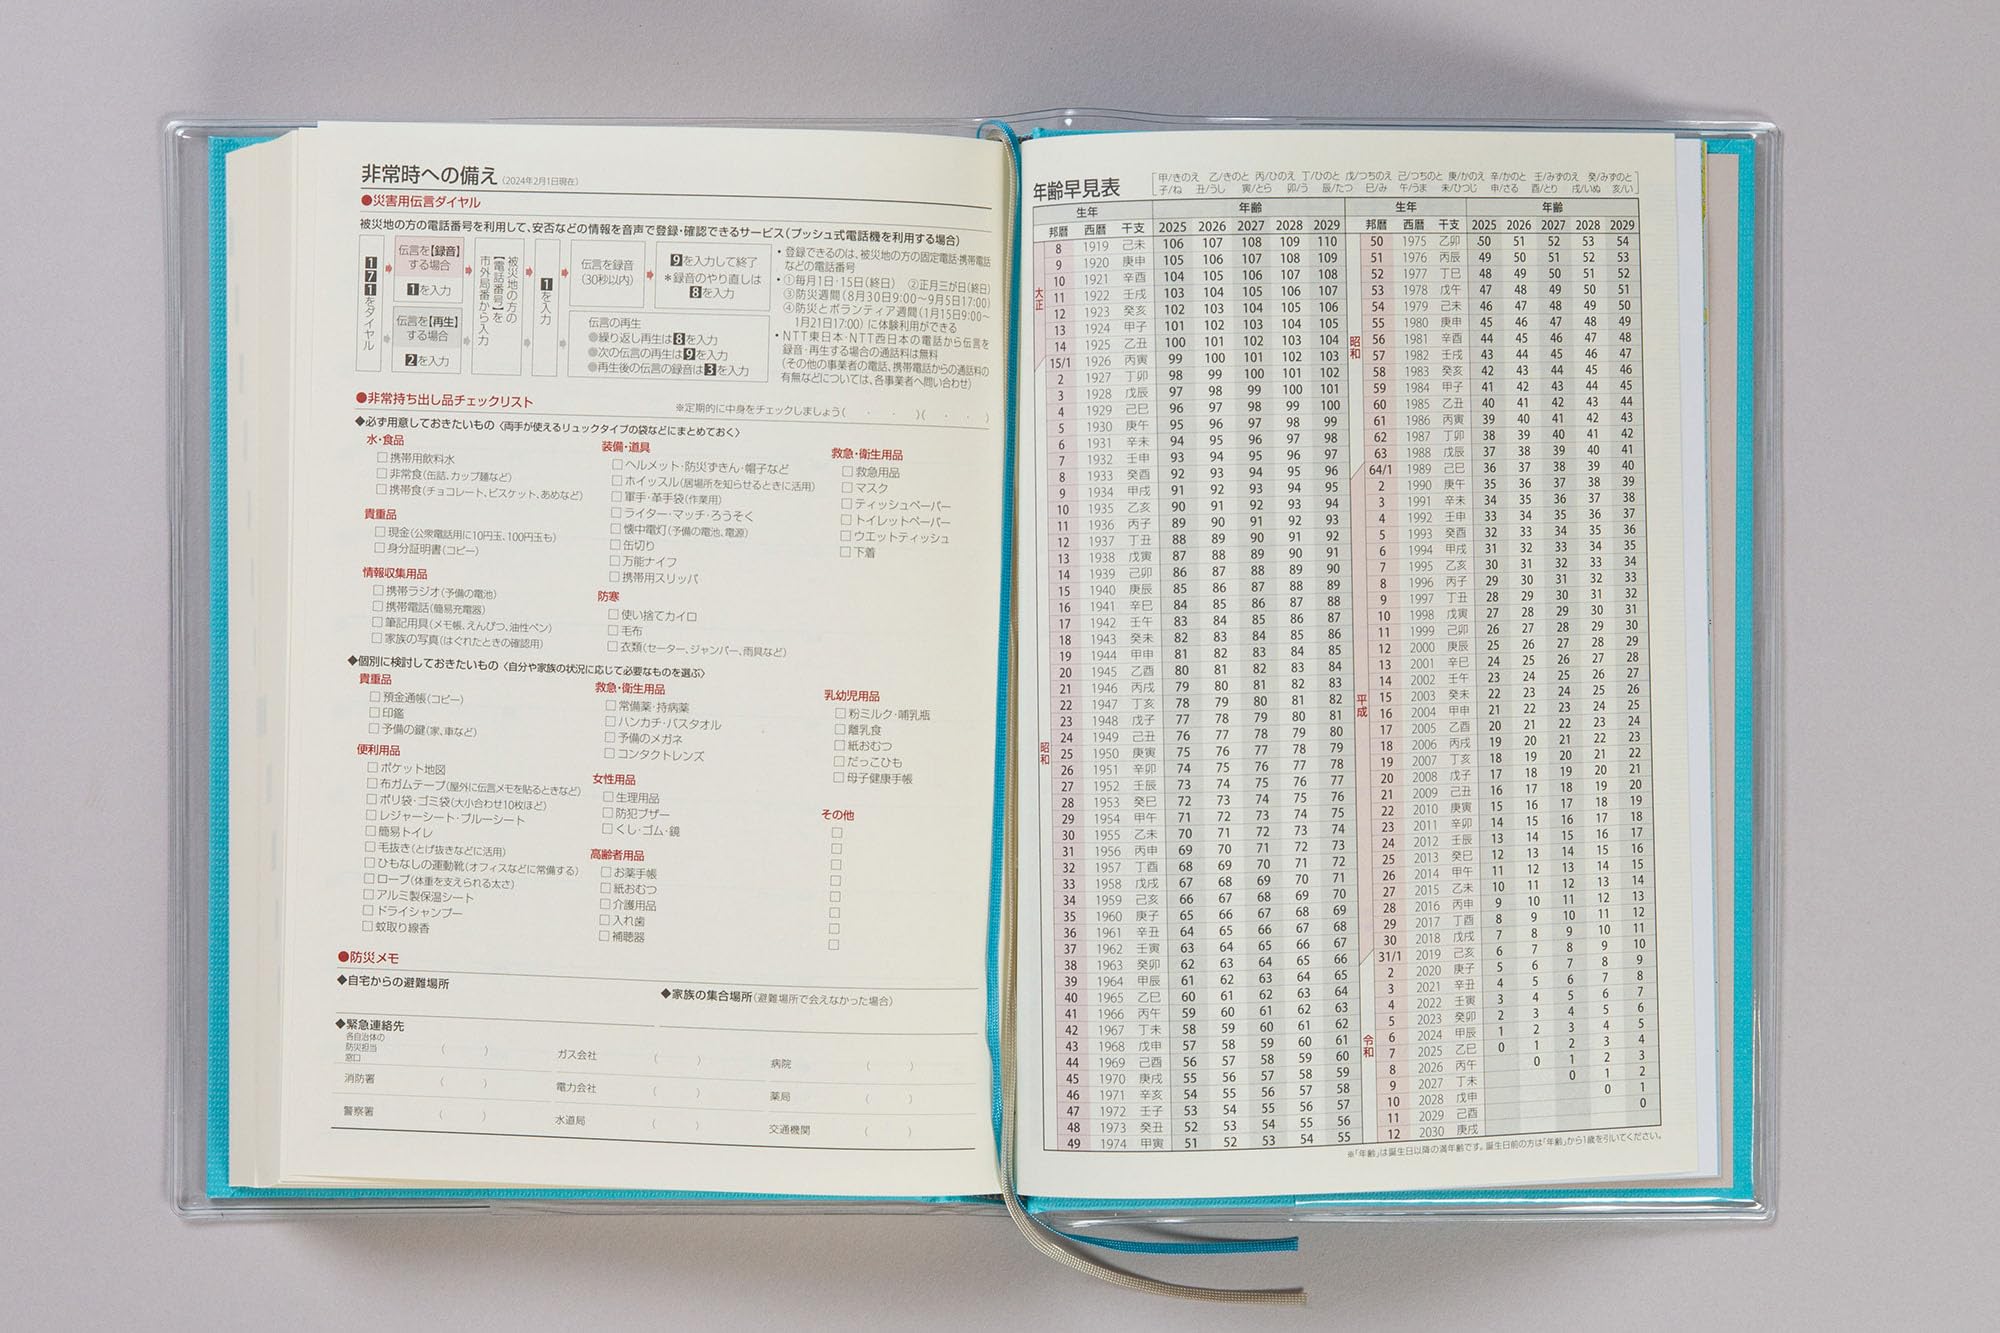 非常時への備え(2024年2月1日現在)
●災害用伝言ダイヤル
被災地の方の電話番号を利用して、安否などの情報を音声で登録・確認できるサービス(プッシュ式電話機を利用する場合)
171をダイヤル
伝言を【録音】
する場合
1を入力
伝言を【再生】
する場合
2を入力
被災地の方の
【電話番号】を
市外局番から入力
1を入力
伝言を録音
(30秒以内)
9を入力して終了
*録音のやり直しは
8を入力
伝言の再生
●繰り返し再生は8を入力
●次の伝言の再生は9を入力
●再生後の伝言の録音は3を入力
・登録できるのは、被災地の方の固定電話・携帯電話
などの電話番号
・①毎月1日・15日(終日) ②正月三が日(終日)
③防災週間(8月30日9:00~9月5日17:00)
④防災とボランティア週間(1月15日9:00~
1月21日17:00)に体験利用ができる
・NTT東日本・NTT西日本の電話から伝言を
録音・再生する場合の通話料は無料
(その他の事業者の電話、携帯電話からの通話料の
有無などについては、各事業者へ問い合わせ)
●非常持ち出し品チェックリスト
※定期的に中身をチェックしましょう( ・ ・ )( ・ ・ )
◆必ず用意しておきたいもの〈両手が使えるリュックタイプの袋などにまとめておく〉
水・食品
□携帯用飲料水
□非常食(缶詰、カップ麺など)
□携帯食(チョコレート、ビスケット、あめなど)
貴重品
□現金(公衆電話用に10円玉、100円玉も)
□身分証明書(コピー)
情報収集用品
□携帯ラジオ(予備の電池)
□携帯電話(簡易充電器)
□筆記用具(メモ帳、えんぴつ、油性ペン)
□家族の写真(はぐれたときの確認用)
装備・道具
□ヘルメット・防災ずきん・帽子など
□ホイッスル(居場所を知らせるときに活用)
□軍手・革手袋(作業用)
□ライター・マッチ・ろうそく
□懐中電灯(予備の電池、電源)
□缶切り
□万能ナイフ
□携帯用スリッパ
防寒
□使い捨てカイロ
□毛布
□衣類(セーター、ジャンパー、雨具など)
救急・衛生用品
□救急用品
□マスク
□ティッシュペーパー
□トイレットペーパー
□ウエットティッシュ
□下着
◆個別に検討しておきたいもの〈自分や家族の状況に応じて必要なものを選ぶ〉
貴重品
□預金通帳(コピー)
□印鑑
□予備の鍵(家、車など)
便利用品
□ポケット地図
□布ガムテープ(屋外に伝言メモを貼るときなど)
□ポリ袋・ゴミ袋(大小合わせ10枚ほど)
□レジャーシート・ブルーシート
□簡易トイレ
□毛抜き(とげ抜きなどに活用)
□ひもなしの運動靴(オフィスなどに常備する)
□ロープ(体重を支えられる太さ)
□アルミ製保温シート
□ドライシャンプー
□蚊取り線香
救急・衛生用品
□常備薬・持病薬
□ハンカチ・バスタオル
□予備のメガネ
□コンタクトレンズ
女性用品
□生理用品
□防犯ブザー
□くし・ゴム・鏡
高齢者用品
□お薬手帳
□紙おむつ
□介護用品
□入れ歯
□補聴器
乳幼児用品
□粉ミルク・哺乳瓶
□離乳食
□紙おむつ
□だっこひも
□母子健康手帳
その他
□
□
□
□
□
□
□
□
●防災メモ
◆自宅からの避難場所
◆家族の集合場所(避難場所で会えなかった場合)
◆緊急連絡先
各自治体の
防災担当
窓口
( )
ガス会社 ( )
病院 ( )
消防署 ( )
電力会社 ( )
薬局 ( )
警察署 ( )
水道局 ( )
交通機関 ( )
年齢早見表
甲/きのえ 乙/きのと 丙/ひのえ 丁/ひのと 戊/つちのえ 己/つちのと 庚/かのえ 辛/かのと 壬/みずのえ 癸/みずのと
子/ね 丑/うし 寅/とら 卯/う 辰/たつ 巳/み 午/うま 未/ひつじ 申/さる 酉/とり 戌/いぬ 亥/い
生年 年齢
邦暦 西暦 干支 2025 2026 2027 2028 2029
大正
8 1919 己未 106 107 108 109 110
9 1920 庚申 105 106 107 108 109
10 1921 辛酉 104 105 106 107 108
11 1922 壬戌 103 104 105 106 107
12 1923 癸亥 102 103 104 105 106
13 1924 甲子 101 102 103 104 105
14 1925 乙丑 100 101 102 103 104
15/1 1926 丙寅 99 100 101 102 103
昭和
2 1927 丁卯 98 99 100 101 102
3 1928 戊辰 97 98 99 100 101
4 1929 己巳 96 97 98 99 100
5 1930 庚午 95 96 97 98 99
6 1931 辛未 94 95 96 97 98
7 1932 壬申 93 94 95 96 97
8 1933 癸酉 92 93 94 95 96
9 1934 甲戌 91 92 93 94 95
10 1935 乙亥 90 91 92 93 94
11 1936 丙子 89 90 91 92 93
12 1937 丁丑 88 89 90 91 92
13 1938 戊寅 87 88 89 90 91
14 1939 己卯 86 87 88 89 90
15 1940 庚辰 85 86 87 88 89
16 1941 辛巳 84 85 86 87 88
17 1942 壬午 83 84 85 86 87
18 1943 癸未 82 83 84 85 86
19 1944 甲申 81 82 83 84 85
20 1945 乙酉 80 81 82 83 84
21 1946 丙戌 79 80 81 82 83
22 1947 丁亥 78 79 80 81 82
23 1948 戊子 77 78 79 80 81
24 1949 己丑 76 77 78 79 80
25 1950 庚寅 75 76 77 78 79
26 1951 辛卯 74 75 76 77 78
27 1952 壬辰 73 74 75 76 77
28 1953 癸巳 72 73 74 75 76
29 1954 甲午 71 72 73 74 75
30 1955 乙未 70 71 72 73 74
31 1956 丙申 69 70 71 72 73
32 1957 丁酉 68 69 70 71 72
33 1958 戊戌 67 68 69 70 71
34 1959 己亥 66 67 68 69 70
35 1960 庚子 65 66 67 68 69
36 1961 辛丑 64 65 66 67 68
37 1962 壬寅 63 64 65 66 67
38 1963 癸卯 62 63 64 65 66
39 1964 甲辰 61 62 63 64 65
40 1965 乙巳 60 61 62 63 64
41 1966 丙午 59 60 61 62 63
42 1967 丁未 58 59 60 61 62
43 1968 戊申 57 58 59 60 61
44 1969 己酉 56 57 58 59 60
45 1970 庚戌 55 56 57 58 59
46 1971 辛亥 54 55 56 57 58
47 1972 壬子 53 54 55 56 57
48 1973 癸丑 52 53 54 55 56
49 1974 甲寅 51 52 53 54 55
生年 年齢
邦暦 西暦 干支 2025 2026 2027 2028 2029
昭和
50 1975 乙卯 50 51 52 53 54
51 1976 丙辰 49 50 51 52 53
52 1977 丁巳 48 49 50 51 52
53 1978 戊午 47 48 49 50 51
54 1979 己未 46 47 48 49 50
55 1980 庚申 45 46 47 48 49
56 1981 辛酉 44 45 46 47 48
57 1982 壬戌 43 44 45 46 47
58 1983 癸亥 42 43 44 45 46
59 1984 甲子 41 42 43 44 45
60 1985 乙丑 40 41 42 43 44
61 1986 丙寅 39 40 41 42 43
62 1987 丁卯 38 39 40 41 42
63 1988 戊辰 37 38 39 40 41
64/1 1989 己巳 36 37 38 39 40
平成
2 1990 庚午 35 36 37 38 39
3 1991 辛未 34 35 36 37 38
4 1992 壬申 33 34 35 36 37
5 1993 癸酉 32 33 34 35 36
6 1994 甲戌 31 32 33 34 35
7 1995 乙亥 30 31 32 33 34
8 1996 丙子 29 30 31 32 33
9 1997 丁丑 28 29 30 31 32
10 1998 戊寅 27 28 29 30 31
11 1999 己卯 26 27 28 29 30
12 2000 庚辰 25 26 27 28 29
13 2001 辛巳 24 25 26 27 28
14 2002 壬午 23 24 25 26 27
15 2003 癸未 22 23 24 25 26
16 2004 甲申 21 22 23 24 25
17 2005 乙酉 20 21 22 23 24
18 2006 丙戌 19 20 21 22 23
19 2007 丁亥 18 19 20 21 22
20 2008 戊子 17 18 19 20 21
21 2009 己丑 16 17 18 19 20
22 2010 庚寅 15 16 17 18 19
23 2011 辛卯 14 15 16 17 18
24 2012 壬辰 13 14 15 16 17
25 2013 癸巳 12 13 14 15 16
26 2014 甲午 11 12 13 14 15
27 2015 乙未 10 11 12 13 14
28 2016 丙申 9 10 11 12 13
29 2017 丁酉 8 9 10 11 12
30 2018 戊戌 7 8 9 10 11
31/1 2019 己亥 6 7 8 9 10
令和
2 2020 庚子 5 6 7 8 9
3 2021 辛丑 4 5 6 7 8
4 2022 壬寅 3 4 5 6 7
5 2023 癸卯 2 3 4 5 6
6 2024 甲辰 1 2 3 4 5
7 2025 乙巳 0 1 2 3 4
8 2026 丙午 0 1 2 3
9 2027 丁未 0 1 2
10 2028 戊申 0 1
11 2029 己酉 0
12 2030 庚戌
※「年齢」は誕生日以降の満年齢です。誕生日前の方は「年齢」から1歳を引いてください。